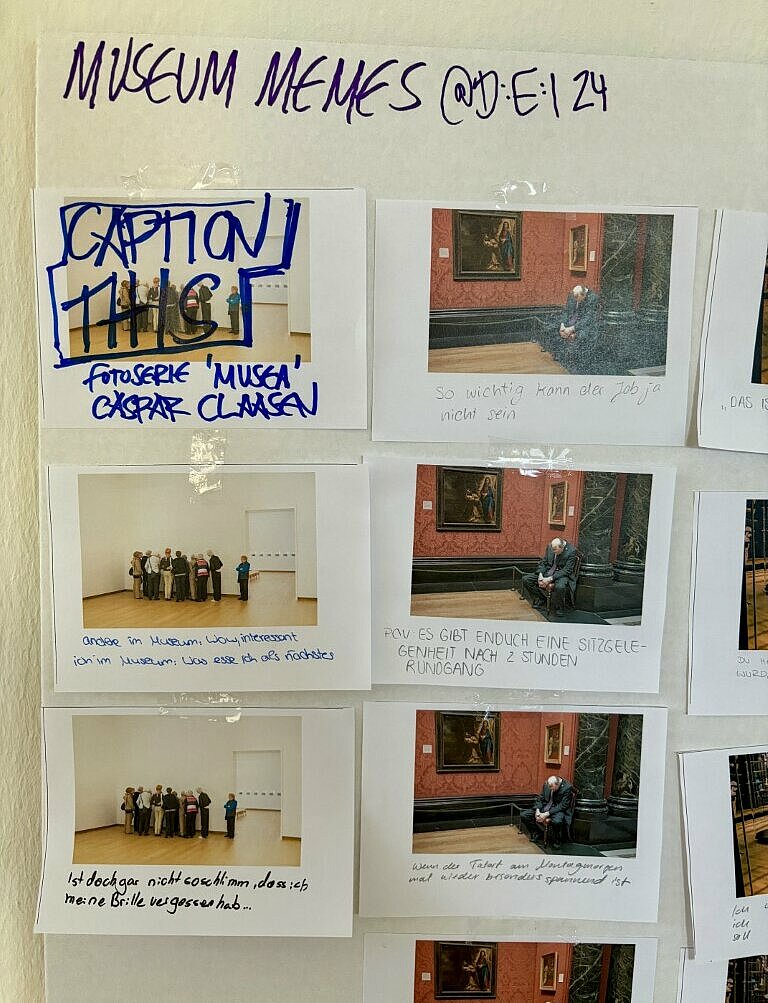 MUSEUM MEMES @D:E:I 24
CAPTION
THIS
FOTOSERIE 'MUSEA'
CASPAR CLAASEN
So wichtig kann der Job ja
nicht sein
„DAS IS
andere im Museum: Wow, interessant
ich im Museum: Was esse ich als nächstes
POV: ES GIBT ENDLICH EINE SITZGELE-
GENHEIT NACH 2 STUNDEN
RUNDGANG
DU
WURD
Ist doch gar nicht so schlimm, dass ich
meine Brille vergessen hab...
Wenn der Tatort am Montagmorgen
mal wieder besonders spannend ist
Ich
ich
soll